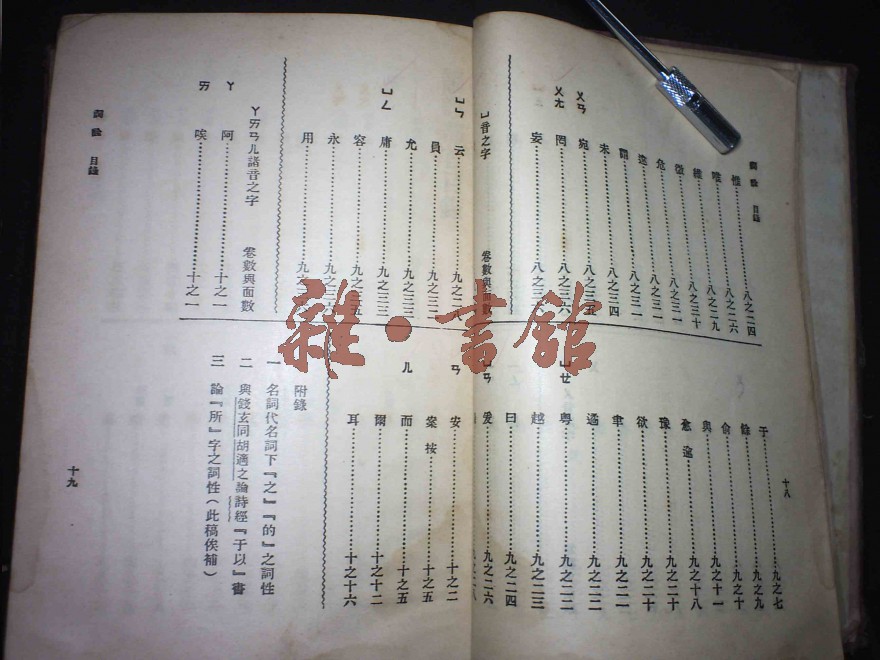 詞詮 目錄
惟……八之二四
唯……八之二六
維……八之二九
微……八之三十
危……八之三一
爲……八之三二
未……八之三四
ㄨㄢ
宛……八之三五
ㄨㄤ
罔……八之三六
妄……八之三六
ㄩ音之字 卷數與面數
于……九之七
餘……九之九
俞……九之十
與……九之十一
愈 逾……九之十八
豫……九之二十
欲……九之二十
聿……九之二一
遹……九之二二
ㄩㄝ
粵……九之二二
越……九之二三
曰……九之二四
ㄩㄢ
爰……九之二六
十八
詞詮 目錄
ㄩㄣ
云……九之二八
員……九之三二
允……九之三三
ㄩㄥ
庸……九之三三
容……九之三五
永……九之三六
用……九之三
ㄚㄞㄢㄦ諸音之字 卷數與面數
ㄚ
阿……十之一
ㄞ
唉……十之一
ㄢ
安……十之二
案 按……十之五
ㄦ
而……十之五
爾……十之十二
耳……十之十六
附錄
一 名詞代名詞下『之』『的』之詞性
二 與錢玄同胡適之論詩經『于以』書
三 論『所』字之詞性(此稿俟補)
十九
雜·書館